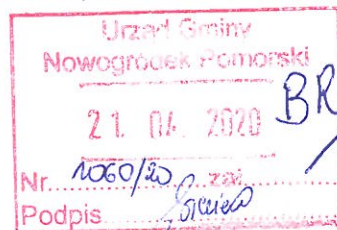 Urząd Gminy
Nowogródek Pomorski
21. 04. 2020
BR
Nr. 1060/20 zał.
Podpis